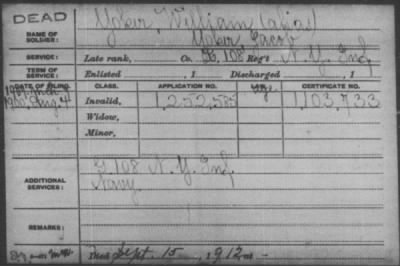 DEAD
NAME OF SOLDIER: Yober, William (alias)
Yober Jacob
SERVICE: Late rank, Co. G, 108 Reg't N.Y. Inf.
TERM OF SERVICE: Enlisted , 1 Discharged , 1
DATE OF FILING. CLASS. APPLICATION NO. CERTIFICATE NO.
1900. Aug. 4 Invalid, 1,252,585 1,103,733
Widow,
Minor,
ADDITIONAL SERVICES: G 108 N.Y. Inf.
Navy
REMARKS:
Died Sept. 15, 1912